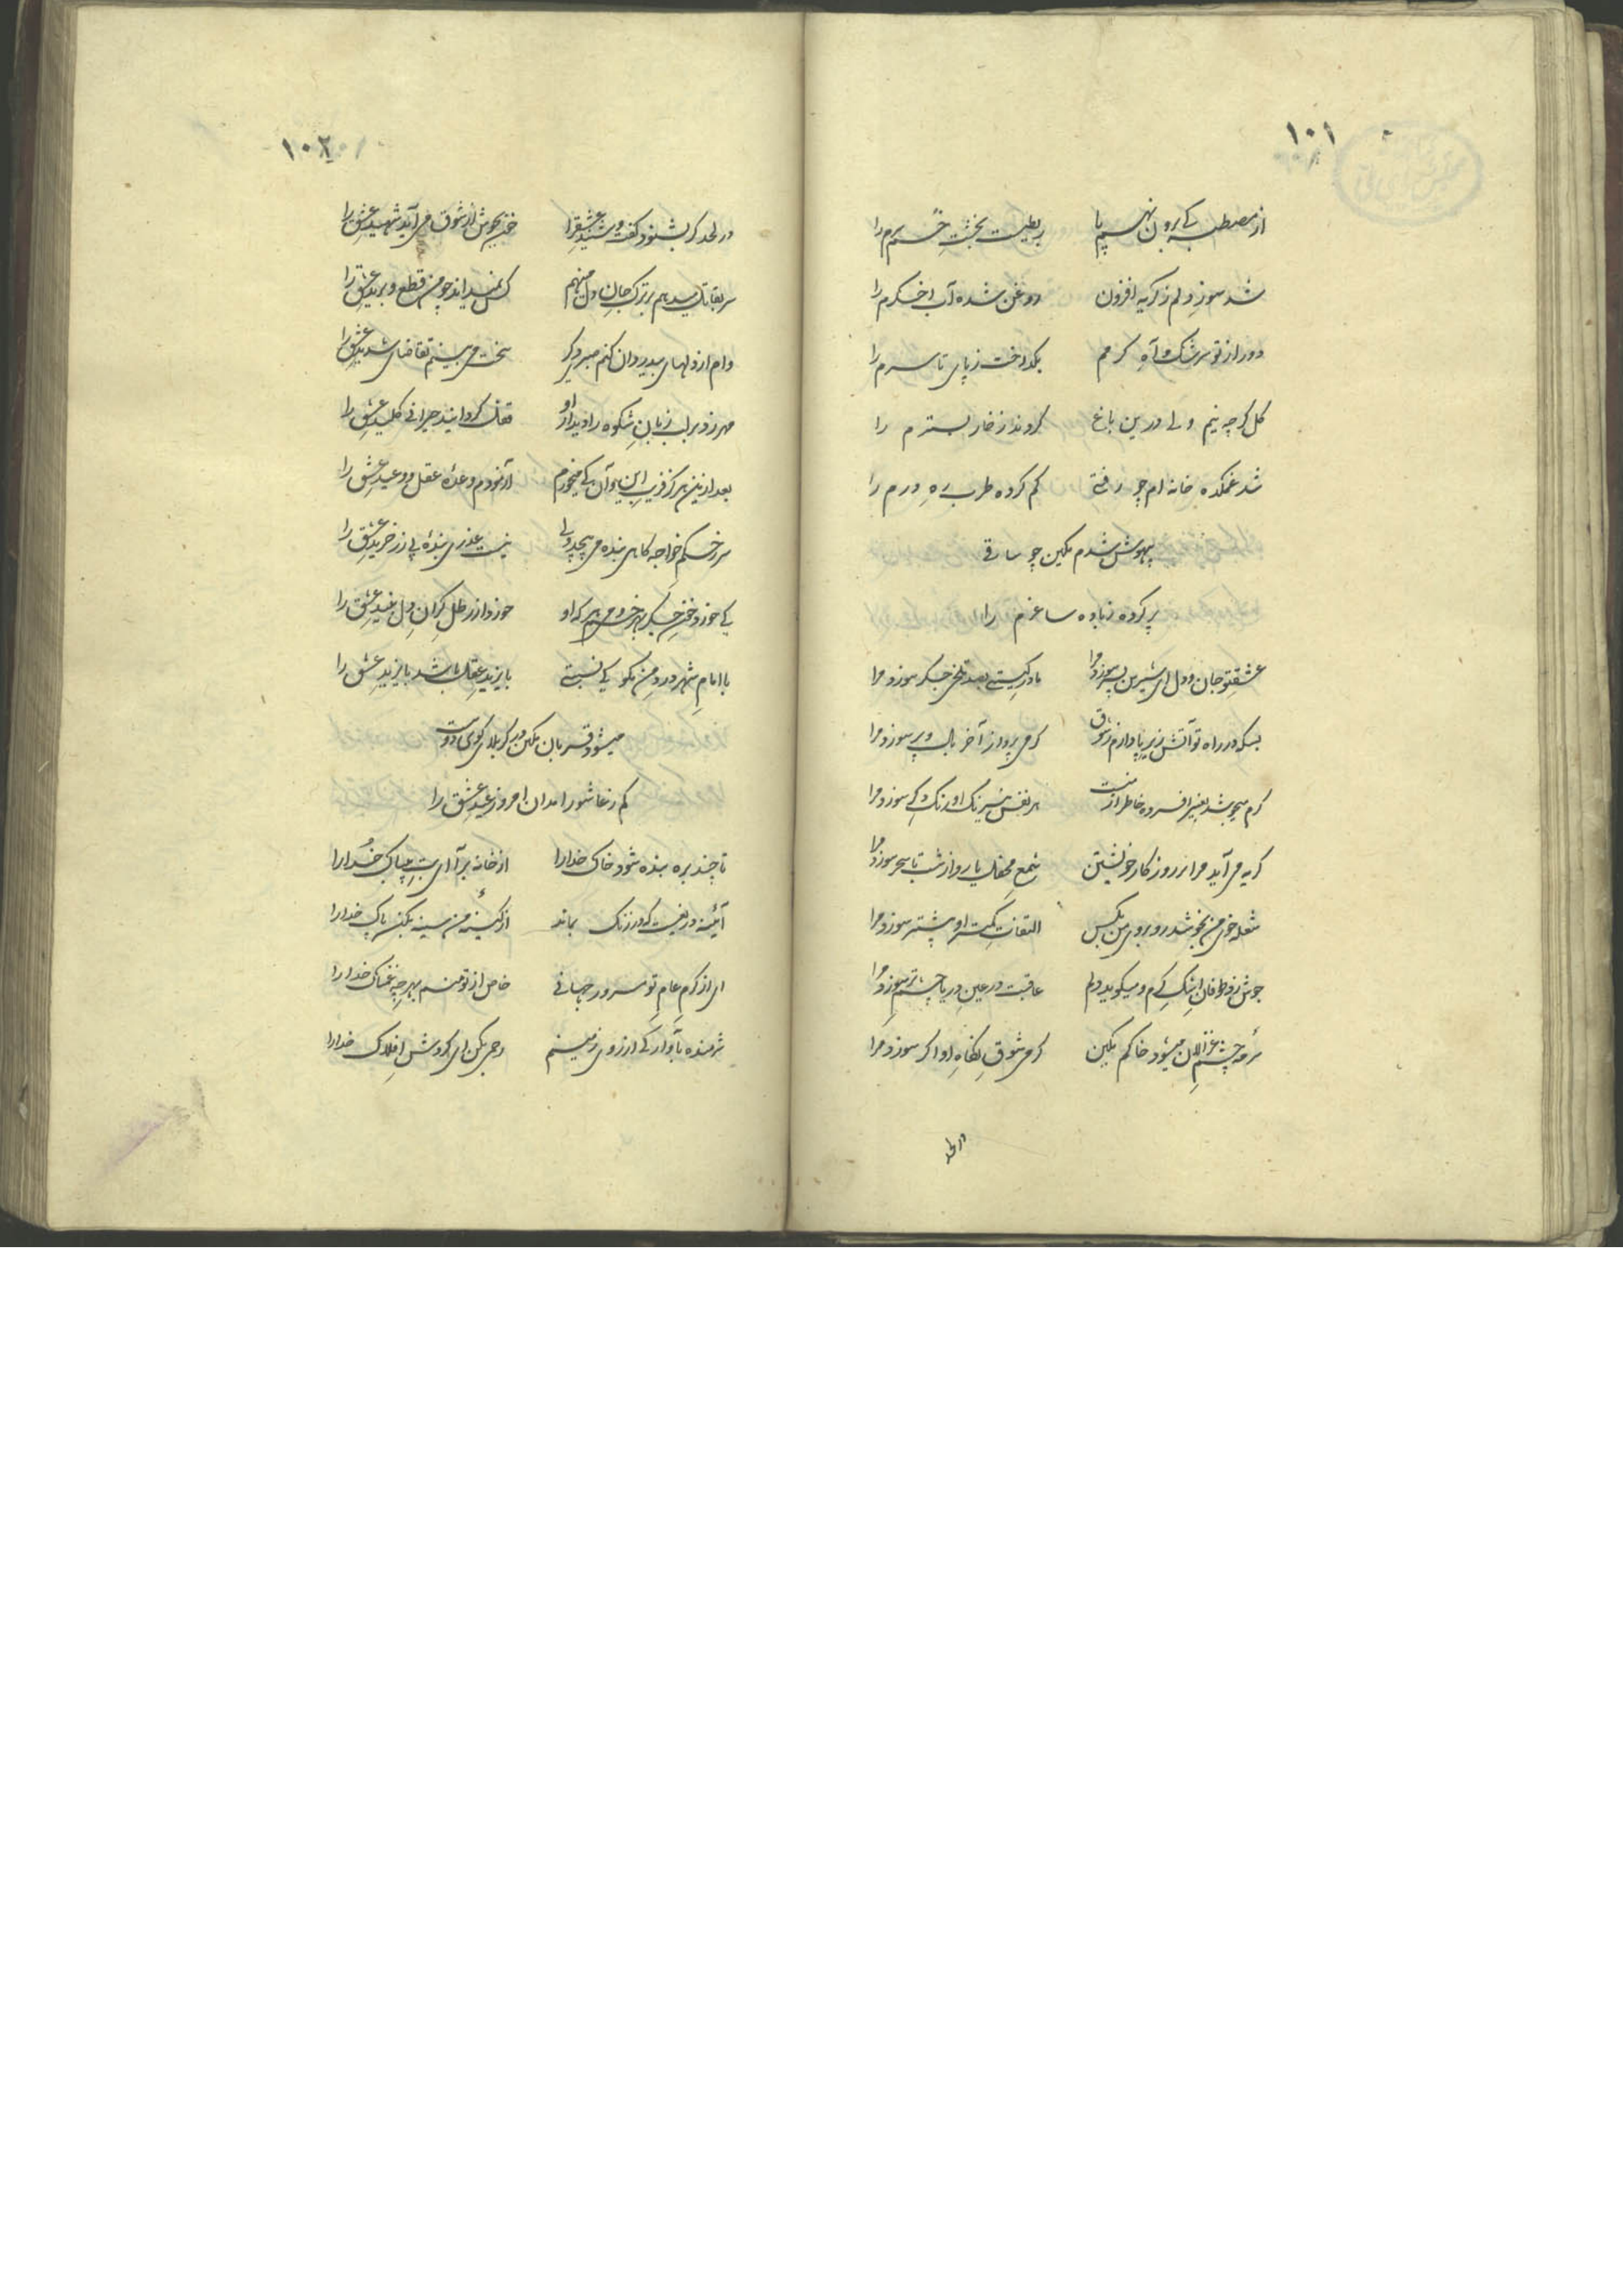 ۱۰۱
از مصطبه کی برون نهم پا
شد سوز دلم ز گریه افزون روغن شده آب اخگرم را
دور از تو سرشک و آه گرمم بگداخت ز پای تا سرم را
گل گرچه نیم ولی درین باغ کردند ز خار بسترم را
شد غمکده خانه ام چو رفتی گم کرده طرب ره درم را
بیهوش شدم مکین چو ساقی
پر کرده ز باده ساغرم را
عشق تو جان و دل ای شیرین پسر سوزد مرا جگر سوزد مرا
بسکه در راه تو آتش زیر پا دارم ز شوق گرمی پرواز آخر بال و پر سوزد مرا
گرم میجوشد بغیر افسرده خاطر از منت هر نفس نیرنگ او رنگ دگر سوزد مرا
گریه می آید مرا بر روزگار خویشتن شمع محفل یار و از شب تا سحر سوزد مرا
شعله خوی من بجوشد روبروی من بکس التفات کمتر او بیشتر سوزد مرا
جوش زد طوفان اشک گرم و میگوید دلم عاقبت در عین دریا چشم تر سوزد مرا
سرمه چشم غزالان میشود خاکم مکین گرمی شوق نگاه او اگر سوزد مرا
در لحد
۱۰۲
در لحد گر بشنود گفت و شنید عشق را خون بجوش از شوق می آید شهید عشق را
بر ترک جان و دل منهم کس نمیداند چو من قطع و برید عشق را
وام از دلهای بیدردان کنم صبر دگر سخت می بینم تقاضای شدید عشق را
مهر زد بر لب زبان شکوه را دیدار او قفل گردانید حیرانی کلید عشق را
بعد ازین هرگز فریب این و آن کی میخورم آزمودم وعده عقل و وعید عشق را
سر ز حکم خواجه گاهی بنده می پیچد ولی نیست عذری بنده بی زر خرید عشق را
کی خورد خون جگر هر که او خورد از رطل گران دل نبید عشق را
با امام شهر درد من نگو کی نسبتی بایزید عقل باشد بایزید عشق را
میشود قربان مکین در کربلای کوی دوست
کم ز عاشورا مدان امروز عید عشق را
تا چند بره بنده شود خاک خدا را از خانه برآ ای بت بیباک خدا را
آئینه دریغست که در زنگ بماند از کینه من سینه بکن پاک خدا را
ای از کرم عام تو مسرور جهانی خاص از تو منم بهر چه غمناک خدا را
رحمی بکن ای گردش افلاک خدا را